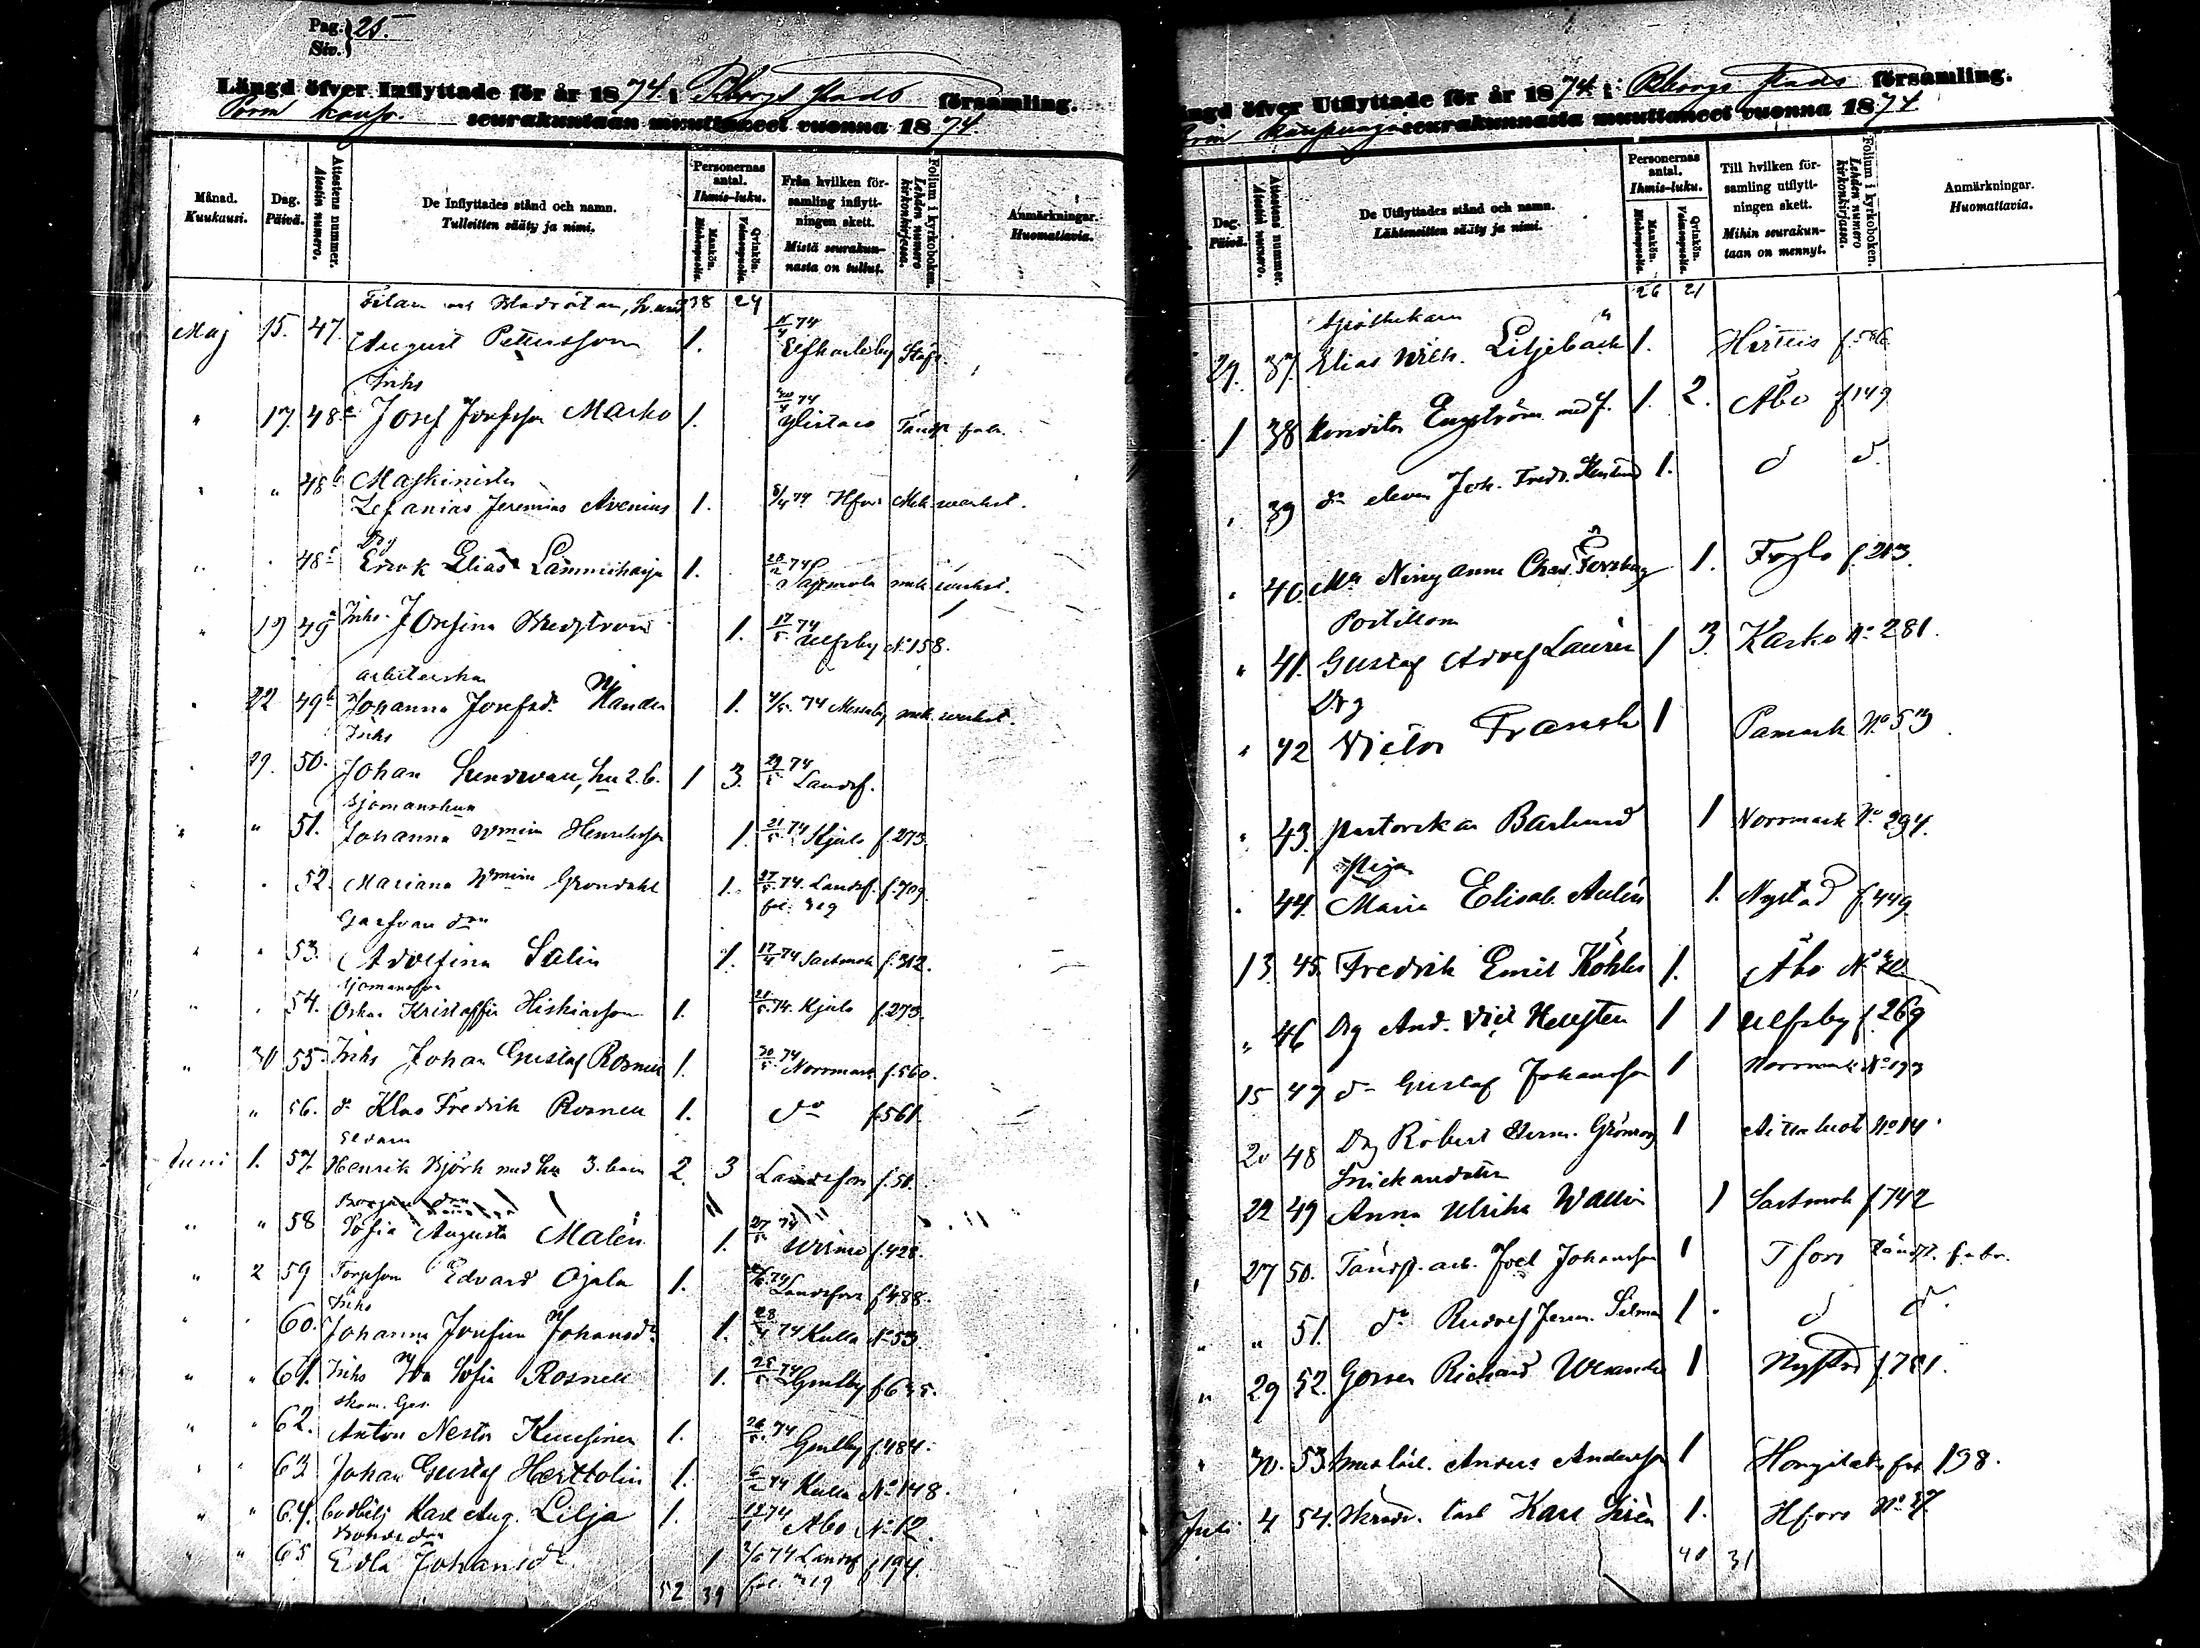 Pag. 25.
Siv.
Längd öfver Inflyttade för år 1874 i Bborgs stads församling.
Porin kaup. seurakuntaan muuttaneet vuonna 1874.
Månad. Kuukausi.
Dag. Päivä.
Attestens nummer. Attestin numero.
De Inflyttades stånd och namn. Tulleitten sääty ja nimi.
Personernas antal. Ihmis-luku.
Mankön. Miehenpuolia.
Qvinkön. Vaimonpuolia.
Från hvilken församling inflyttningen skett. Mistä seurakunnasta on tullut.
Folium i kyrkoboken. Lehden numero kirkonkirjassa.
Anmärkningar. Huomattavia.
38 24
Maj 15. 47. August Pettersson 1. 74 Elfkarleby
Inhs
" 17. 48a Josef Josefsson Marko 1. 74 Ylistaro Tändst. fabr.
Maskinisten
" " 48b Zefanias Jeremias Avenius 1. 74 Hfors Mek. werkst.
Drg
" 48c Erik Elias Lammiharju 1. 74 mek. werkst.
" 19 49a Inhs. Josefina Wedstrom 1. 17/5 74 Ulfsby No 158.
arbeterskan
" 22 49b Johanna Josefsd. 1. 4/5 74 Messuby mek. werkst.
Inhs
" 29. 50. Johan Sundwall, hu 2 b. 1 3. 29/5 74 Landsf.
Sjömanshun
" " 51. Johanna Henriksson 1. 21/5 74 Kjulo f. 273.
" 52. Mariana Grondahl 1. 27/5 74. Landsf. f. 709.
Garfvaredon
" " 53. Adolfina Salin 1. 17/4 74 Sastmola f. 312.
Sjömansson
" " 54. Oskar Kristoffer Hiskiasson 1. 21/5 74. Kjulo f. 273.
" 30 55 Inhs Johan Gustaf Rosnell 1. 30/5 74 Norrmark f. 560.
" 56. do Klas Fredrik Rosnell 1. do f. 561.
Juni 1. 57. Henrik Björk med hu 3. barn 2. 3 Landsfors f. 51.
" " 58 Sofia Augusta Malén 1. 27/5 74 Wirmo f. 428.
" 2 59 Torpson Edvard Ojala 1. 74 Landsfors f. 488.
Inhs
" 60. Johanna Josefina Johansdr. 1. 74 Kulla No 53.
" " 61. Inhs Ida Sofia Rosnell 1. 25/5 74 Gmlby f. 635.
Skom. Ges.
" " 62. Anton Nestor Kuusinen 1. 26/5 74 Gmlby f. 484.
" " 63 Johan Gustaf Herttolin 1. 74 Kulla No 148.
" " 64. Karl Aug. Lilja 1. 74 Åbo No 12.
Bondedon
" " 65 Edla Johansdr 1 74 Landsf f. 194.
52 39
Längd öfver Utflyttade för år 1874 i Bborgs stads församling.
Porin kaupungin seurakunnasta muuttaneet vuonna 1874
Dag. Päivä.
Attestens nummer. Attestin numero.
De Utflyttades stånd och namn. Lähteneitten sääty ja nimi.
Personernas antal. Ihmis-luku.
Mankön. Miehenpuolia.
Qvinkön. Vaimonpuolia.
Till hvilken församling utflyttningen skett. Mihin seurakuntaan on mennyt.
Folium i kyrkoboken. Lehden numero kirkonkirjassa.
Anmärkningar. Huomattavia.
26 21
Apothekaren
29. 37. Elias Wilh. Liljebäck 1. Hiittis f. 586.
1 38 Konditor Engström med f. 1. 2. Åbo f. 149
" 39 do eleven Joh. Fredr. 1. d d.
" 40. Nimy Anna Charl. Forsberg 1. Foglo f. 213.
Postillion
" 41. Gustaf Adolf Laurén 1 3. Kasko No 281.
Drg
" 42 Victor Fransk 1 Pamark No 53
" 43. Pastorskan Barlund 1 Norrmark No 294.
Pigan
" 44. Maria Elisab. Aulén 1. Nystad f. 449
13. 45. Fredrik Emil Köhler 1. Åbo
" 46 Drg And. Vict. Hellsten 1 1 Ulfsby f. 269
15 47 do Gustaf Johansson 1 Norrmark No 193
20 48 Drg Robert Herm. Grönroos 1 No 14.
Snickaredotter
22 49 Anna Ulrika Wallin 1 Sastmola f. 742
" 27 50. Tändst. arb. Joel Johansson 1 Tfors tändst. fabr.
" " 51. do Rudolf Jerem. Silman 1. d d.
" 29 52. Gossen Richard Welander 1 Nystad f. 781.
" 30. 53. Anders Andersson 1 Hongilaks fol 198.
Juli 4 54. Karl Sirén 1. Hfors No 27.
40 31